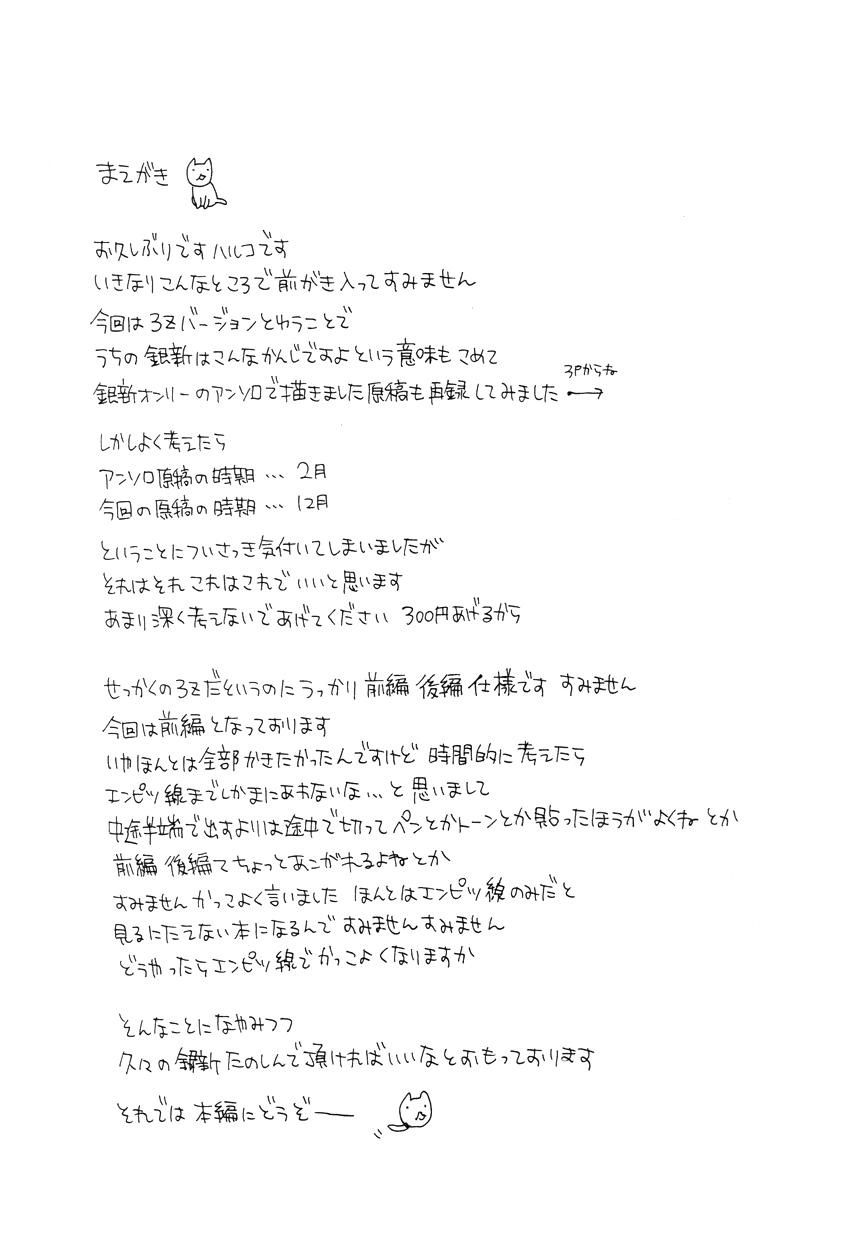 まえがき
お久しぶりです ハルコです
いきなりこんなところで前がき入ってすみません
今回は3Zバージョンとゆうことで
うちの銀新はこんなかんじですよという意味もこめて
3Pからね
銀新オンリーのアンソロで描きました原稿も再録してみました→
しかしよく考えたら
アンソロ原稿の時期…2月
今回の原稿の時期…12月
ということについさっき気付いてしまいましたが
それはそれ これはこれで いいと思います
あまり深く考えないであげてください 300円あげるから
せっかくの3Zだというのにうっかり前編 後編仕様です すみません
今回は前編となっております
いやほんとは全部かきたかったんですけど 時間的に考えたら
エンピツ線までしかまにあわないな…と思いまして
中途半端で出すよりは途中で切って ペンとかトーンとか貼ったほうがよくね とか
前編 後編てちょっとあこがれるよねとか
すみません かっこよく言いました ほんとはエンピツ線のみだと
見るにたえない本になるんで すみませんすみません
どうやったらエンピツ線でかっこよくなりますか
そんなことになやみつつ
久々の銀新たのしんで頂ければいいなとおもっております
それでは 本編にどうぞー